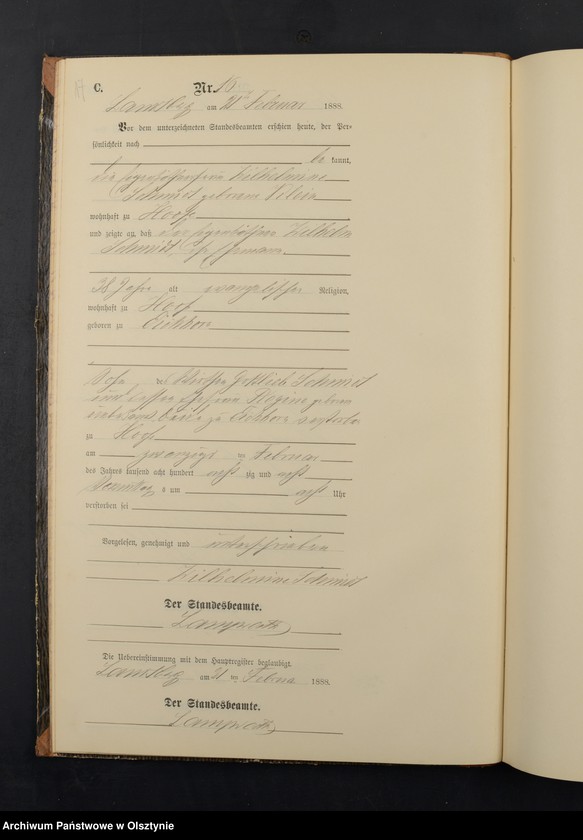 C. Nr. 15.
Landsberg am 21 ten Februar 1888.
Vor dem unterzeichneten Standesbeamten erschien heute, der Per=
sönlichkeit nach
be kannt,
die Wilhelmine
Schmidt geborene
wohnhaft zu Hoofe
und zeigte an, daß der Wilhelm
Schmidt, ihr Ehemann
38 Jahre alt evangelischer Religion,
wohnhaft zu Hoofe
geboren zu Eichhorn
Sohn des Gottlieb Schmidt
und dessen Ehefrau Regine geborene
unbekannt, beide zu Eichhorn verstorben
zu Hoofe
am zwanzigsten Februar
des Jahres tausend acht hundert achtzig und acht
Vormittags um acht Uhr
verstorben sei
Vorgelesen, genehmigt und unterschrieben
Wilhelmine Schmidt
Der Standesbeamte.
Die Uebereinstimmung mit dem Hauptregister beglaubigt.
Landsberg am 21 ten Februar 1888.
Der Standesbeamte.
Archiwum Państwowe w Olsztynie